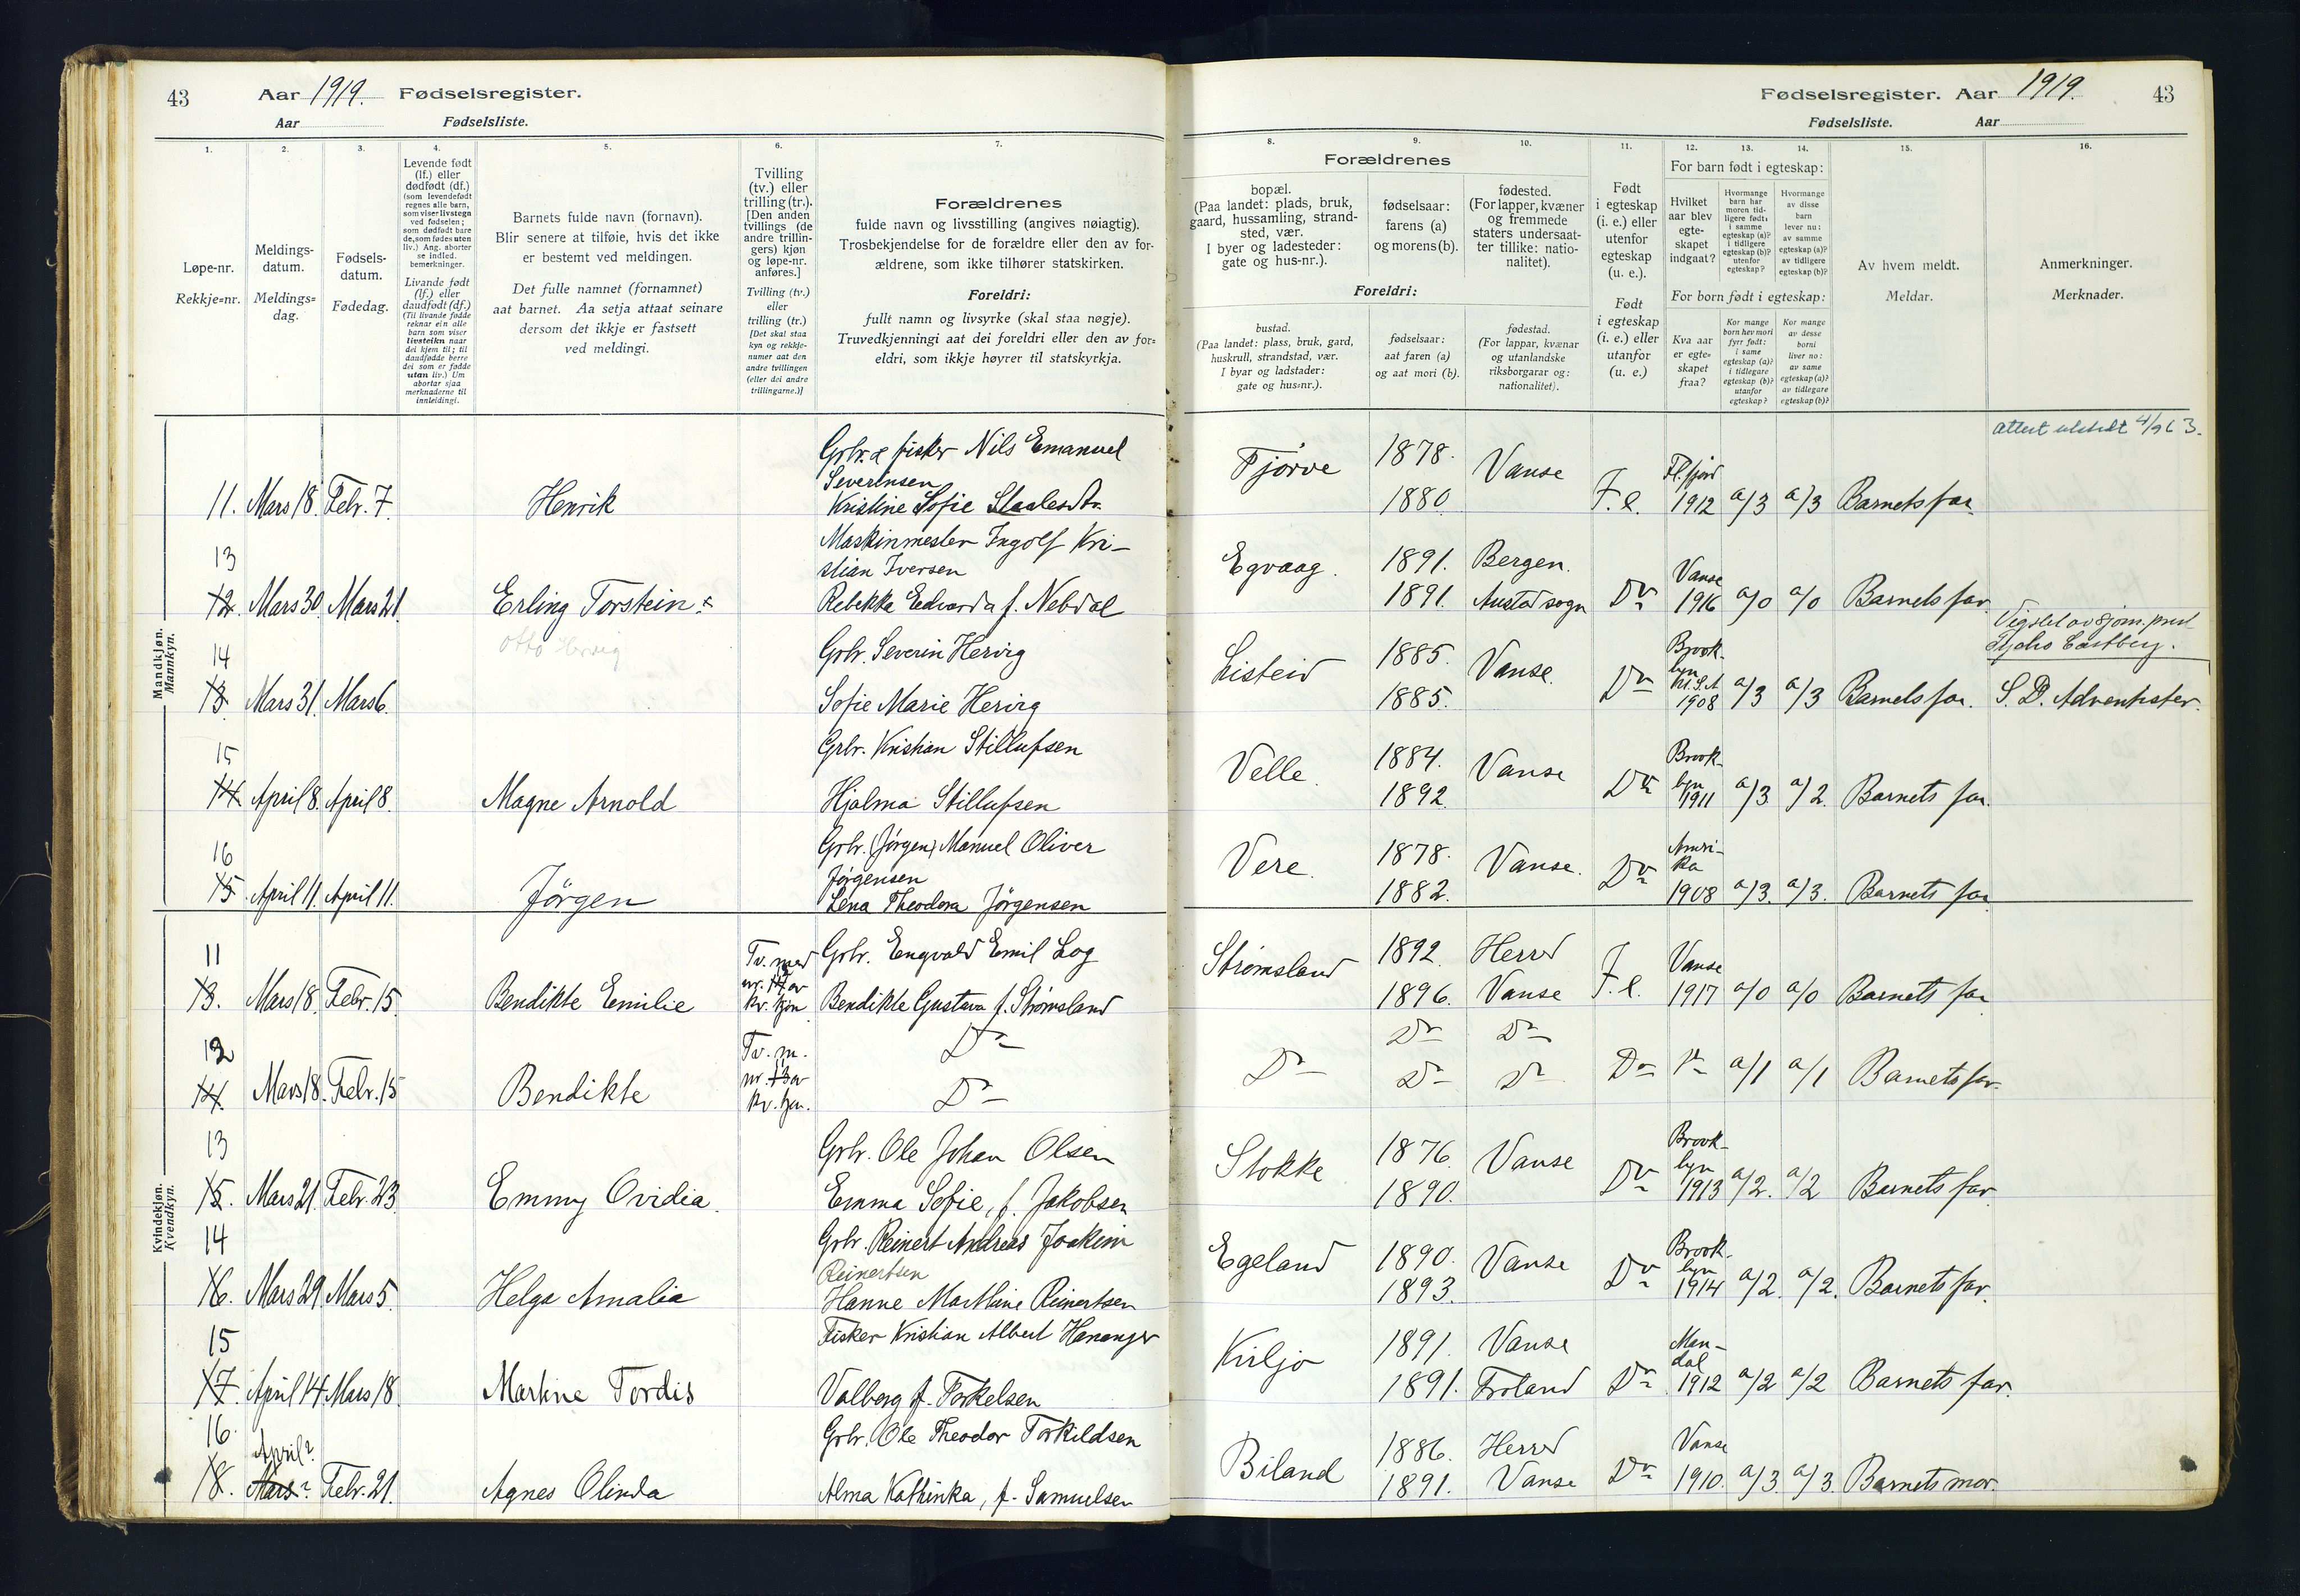 43 Aar 1919. Fødselsregister.
Aar Fødselsliste.
1. 2. 3. 4. 5. 6. 7.
Løpe-nr.
Rekkje=nr.
Meldings-
datum.
Meldings=
dag.
Fødsels-
datum.
Fødedag.
Levende født
(lf.) eller
dødfødt (df.)
(som levendefødt
regnes alle barn,
som viser livstegn
ved fødselen;
som dødfødt bare
de, som fødes uten
liv.) Ang. aborter
se indled.
bemerkninger.
Livande født
(lf.) eller
daudfødt (df.)
(Til livande fødde
reknar ein alle
barn som viser
livsteikn naar
dei kjem til; til
daudfødde berre
dei som er fødde
utan liv.) Um
abortar sjaa
merknaderne til
innleidingi.
Barnets fulde navn (fornavn).
Blir senere at tilføie, hvis det ikke
er bestemt ved meldingen.
Det fulle namnet (fornamnet)
aat barnet. Aa setja attaat seinare
dersom det ikkje er fastsett
ved meldingi.
Tvilling
(tv.) eller
trilling (tr.).
[Den anden
tvillings (de
andre trillin-
gers) kjøn
og løpe-nr.
anføres.]
Tvilling (tv.)
eller
trilling (tr.)
[Det skal staa
kyn og rekkje-
numer aat den
andre tvillingen
(eller dei andre
trillingarne.)]
Forældrenes
fulde navn og livsstilling (angives nøiagtig).
Trosbekjendelse for de forældre eller den av for-
ældrene, som ikke tilhører statskirken.
Foreldri:
fullt namn og livsyrke (skal staa nøgje).
Truvedkjenningi aat dei foreldri eller den av for=
eldri, som ikkje høyrer til statskyrkja.
Mandkjøn.
Mannkyn.
Grbr. & fisker Nils Emanuel
Severinsen
11. Mars 18. Febr. 7. Henrik Kristine Sofie
13 Maskinmester Ingolf Kri-
stian Iversen
12. Mars 30. Mars 21. Erling Torstein Rebekka Edvarda f. Nebdal
14 Otto Hervig Grbr. Severin Hervig
13. Mars 31. Mars 6. Sofie Marie Hervig
15 Grbr. Kristian Stillufsen
14 April 8. April 8. Magne Arnold Hjalma Stillufsen
16 Grbr. (Jørgen) Manuel Oliver
Jørgensen
15 April 11. April 11. Jørgen Lena Theodora Jørgensen
Kvindekjøn.
Kvendkyn.
11 Tv. med Grbr. Engvald Emil Log
13. Mars 18. Febr. 15. Bendikte Emilie nr. 12 av
kv. kjøn Bendikte Gustava f. Strømsland
12 Tv. m. Do
14. Mars 18. Febr. 15 Bendikte nr. 13 av
kv. kjøn. Do
13 Grbr. Ole Johan Olsen
15. Mars 21. Febr. 23. Emmy Ovidia. Emma Sofie, f. Jakobsen
14 Grbr. Reinert Andreas Joakim
Reinertsen
16. Mars 29. Mars 5. Helga Amalia Hanne Mathine Reinertsen
15 Fisker Kristian Albert Hananger
17. April 14. Mars 18. Martine Tordis Valborg f. Torkelsen
16. April? Grbr. Ole Theodor Torkildsen
18. Mars? Febr. 21. Agnes Olinda Alma Kathinka, f. Samuelsen
Fødselsregister. Aar 1919. 43
Fødselsliste. Aar
8. 9. 10. 11. 12. 13. 14. 15. 16.
Forældrenes
bopæl.
(Paa landet: plads, bruk,
gaard, hussamling, strand-
sted, vær.
I byer og ladesteder:
gate og hus-nr.).
fødselsaar:
farens (a)
og morens (b).
fødested.
(For lapper, kvæner
og fremmede
staters undersaat-
ter tillike: natio-
nalitet).
Foreldri:
bustad.
(Paa landet: plass, bruk, gard,
huskrull, strandstad, vær.
I byar og ladstader:
gate og hus=nr.).
fødselsaar:
aat faren (a)
og aat mori (b).
fødestad.
(For lappar, kvænar
og utanlandske
riksborgarar og:
nationalitet).
Født
i egteskap
(i. e.) eller
utenfor
egteskap
(u. e.).
Født
i egteskap
(i. e.) eller
utanfor
(u. e.)
For barn født i egteskap:
Hvilket
aar blev
egte-
skapet
indgaat?
Hvormange
barn har
moren tid-
ligere født:
i samme
egteskap (a)?
i tidligere
egteskap (b)?
utenfor
egteskap?
Hvormange
av disse
barn
lever nu:
av samme
egteskap (a)?
av tidligere
egteskap (b)?
For born født i egteskap:
Kva aar
er egte=
skapet
fraa?
Kor mange
born hev mori
fyrr født:
i same
egteskap (a)?
i tidlegare
egteskap (b)?
utanfor
egteskap?
Kor mange
av desse
borni
liver no:
av same
egteskap (a)?
av tidlegare
egteskap (b)?
Av hvem meldt.
Meldar.
Anmerkninger.
Merknader.
Attest utstedt 4/9 63.
Tjørve 1878. Vanse Fl.fjord
1880 F. e. 1912 a/3 a/3 Barnets far.
Egvaag. 1891. Bergen. Vanse
1891. Austad sogn Do 1916 a/0 a/0 Barnets far.
Vigslet av sjøm.prest
Castberg.
Listeid 1885. Vanse. Do Brook-
lyn
U.S.A
1885. 1908 a/3 a/3 Barnets far. S. D. Adventister.
Velle. 1884. Vanse Do Brook-
1892. lyn
1911 a/3 a/2. Barnets far.
Vere. 1878. Vanse. Do Ameri-
ka
1882. 1908 a/3. a/3. Barnets far
Strømsland 1892. Herred Vanse
1896. Vanse F. e. 1917 a/0 a/0 Barnets far
Do Do
Do Do Do Do Do a/1 a/1 Barnets far.
Stokke 1876. Vanse Do Brook-
lyn
1890. 1913 a/2. a/2 Barnets far
Egeland 1890. Vanse Do Brook-
lyn
1893. 1914 a/2. a/2. Barnets far.
Kviljo 1891. Vanse Man-
dal
1891. Froland Do 1912 a/2 a/2 Barnets far.
Biland 1886. Herred Vanse
1891. Vanse Do 1910. a/3. a/3. Barnets mor.